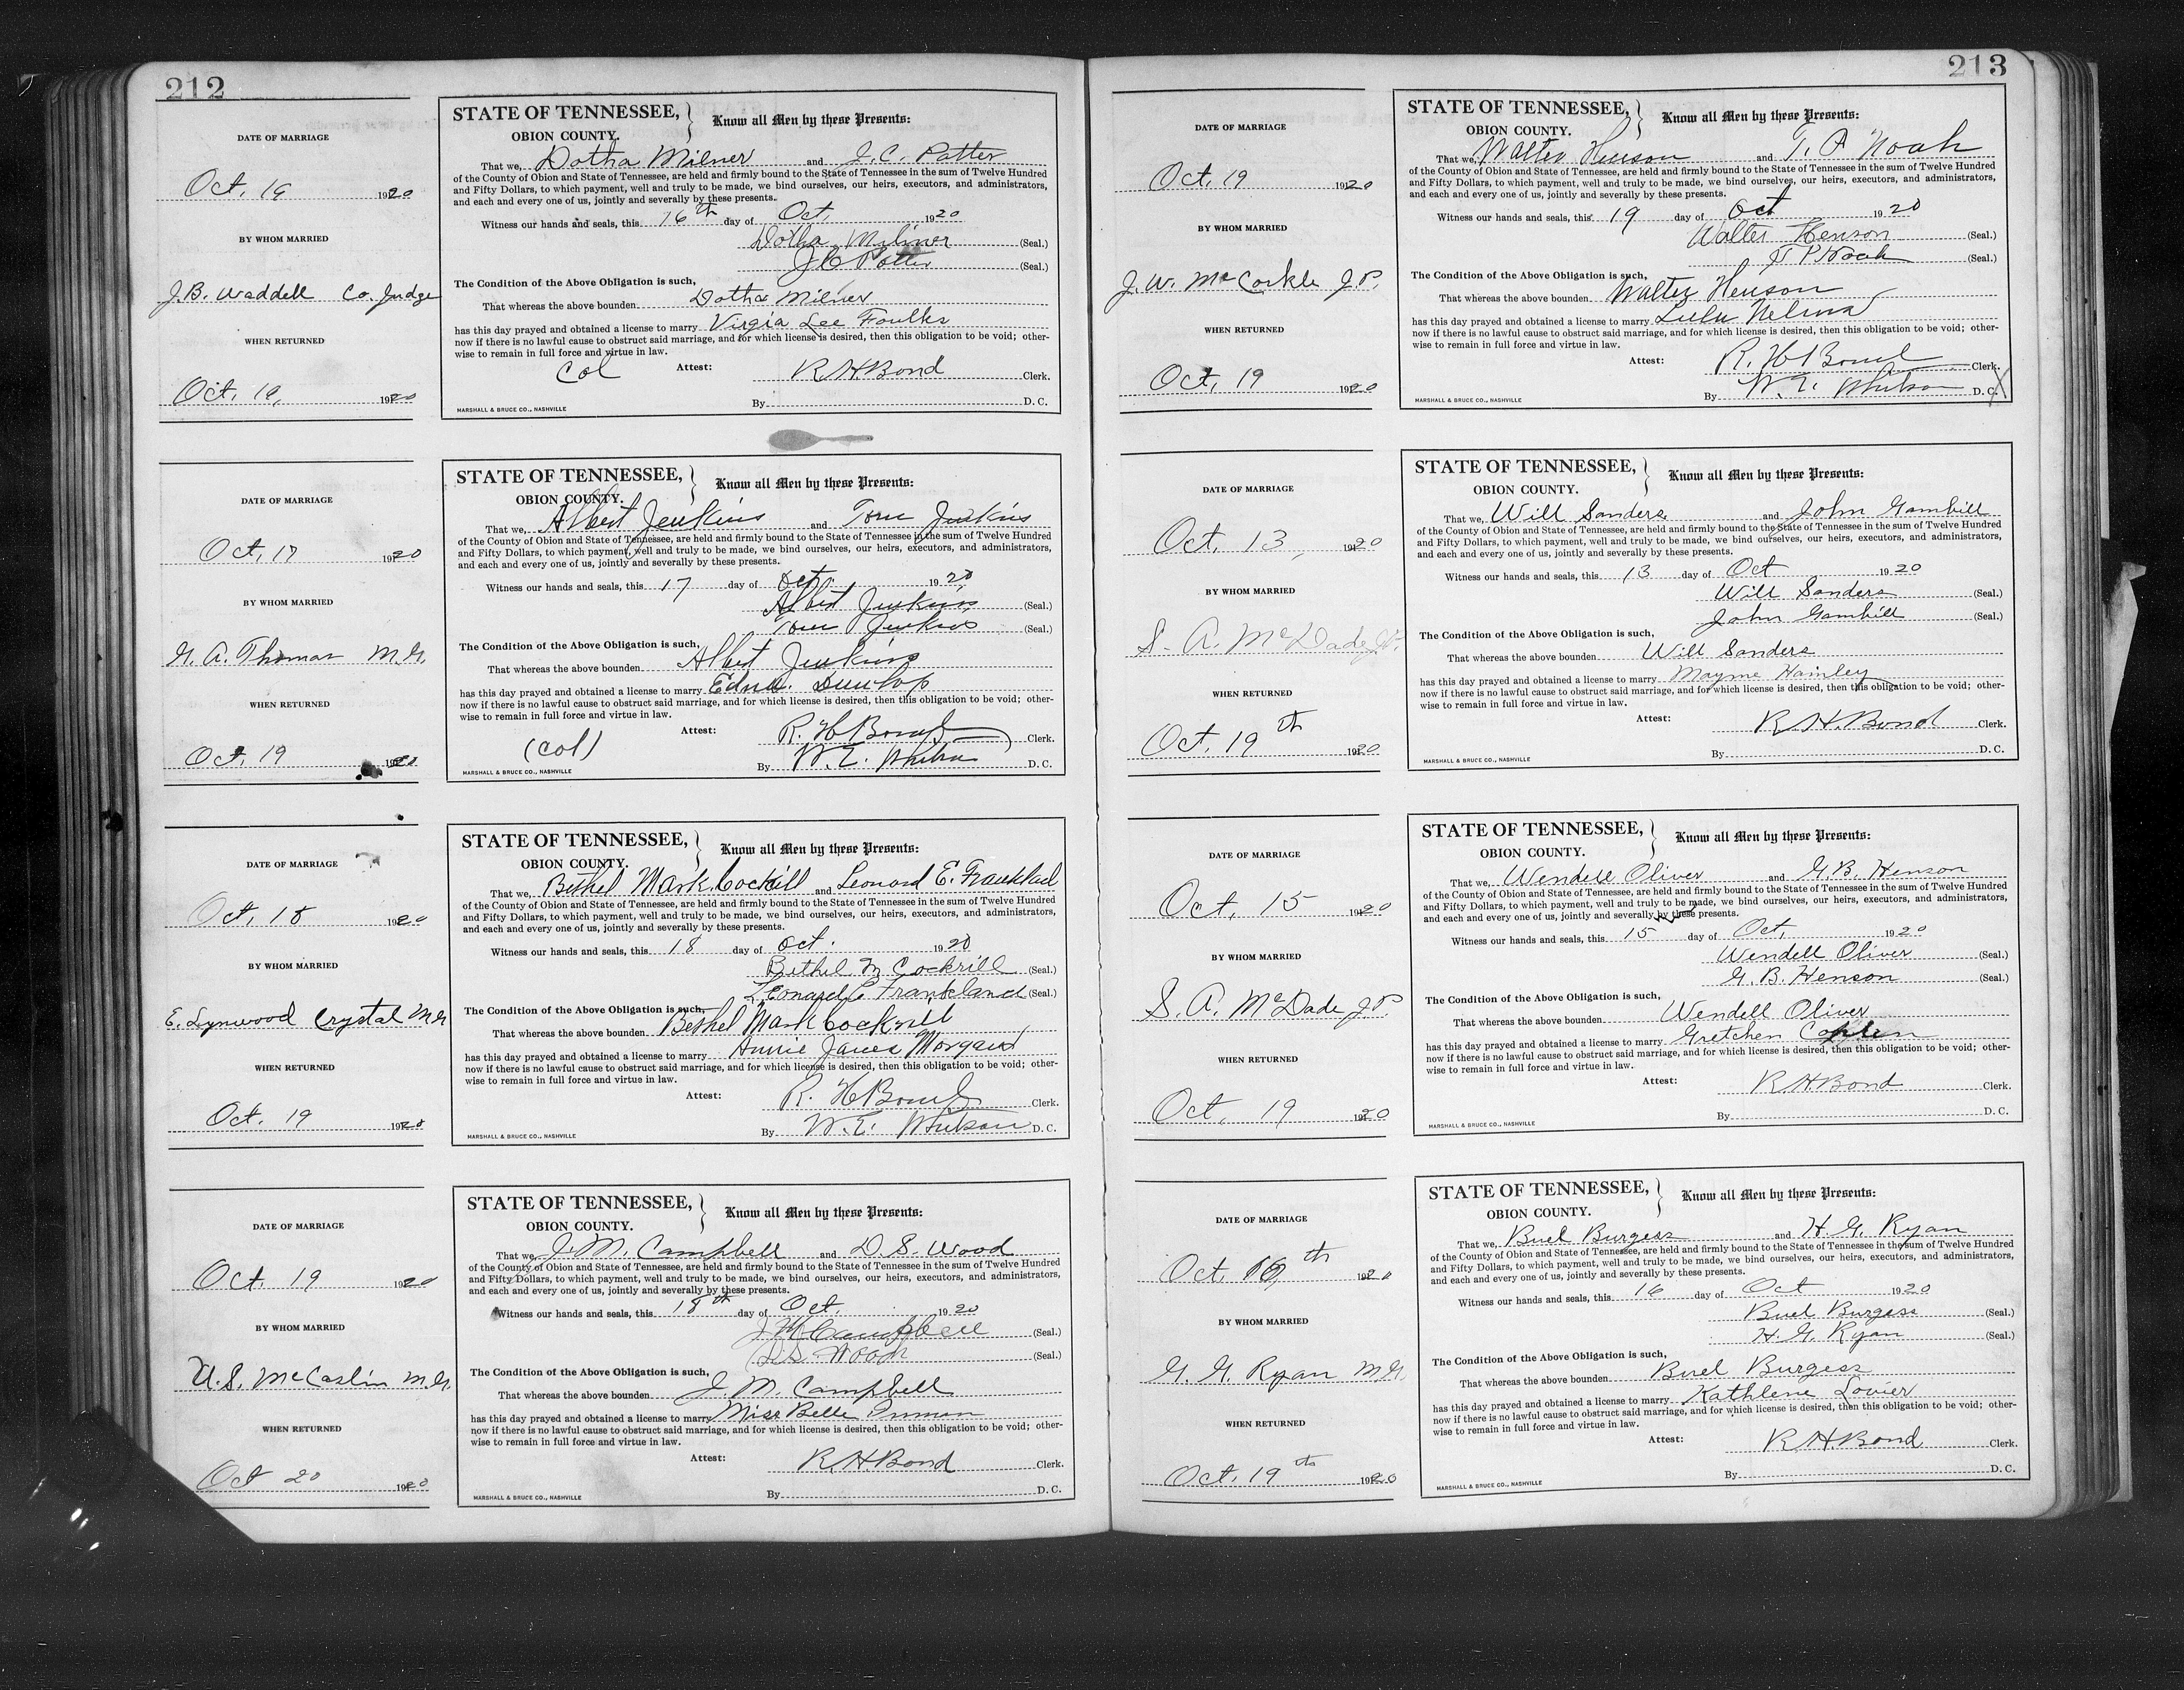 212
DATE OF MARRIAGE
Oct. 19 1920
BY WHOM MARRIED
J. B. Waddell Co. Judge
WHEN RETURNED
Oct. 19, 1920
STATE OF TENNESSEE,
OBION COUNTY.
Know all Men by these Presents:
That we, Dotha Milner and J. C. Potter
of the County of Obion and State of Tennessee, are held and firmly bound to the State of Tennessee in the sum of Twelve Hundred
and Fifty Dollars, to which payment, well and truly to be made, we bind ourselves, our heirs, executors, and administrators,
and each and every one of us, jointly and severally by these presents.
Witness our hands and seals, this 16th day of Oct. 1920
Dotha Milner (Seal.)
J C Potter (Seal.)
The Condition of the Above Obligation is such,
That whereas the above bounden Dotha Milner
has this day prayed and obtained a license to marry Virgia Lee Foulks
now if there is no lawful cause to obstruct said marriage, and for which license is desired, then this obligation to be void; other-
wise to remain in full force and virtue in law.
Col Attest: R. H. Bond Clerk.
By D. C.
MARSHALL & BRUCE CO., NASHVILLE
DATE OF MARRIAGE
Oct. 17 1920
BY WHOM MARRIED
G. A. Thomas M.G.
WHEN RETURNED
Oct. 19 1920
STATE OF TENNESSEE,
OBION COUNTY.
Know all Men by these Presents:
That we, Albert Jenkins and Tom Jenkins
of the County of Obion and State of Tennessee, are held and firmly bound to the State of Tennessee in the sum of Twelve Hundred
and Fifty Dollars, to which payment, well and truly to be made, we bind ourselves, our heirs, executors, and administrators,
and each and every one of us, jointly and severally by these presents.
Witness our hands and seals, this 17 day of Oct. 1920
Albert Jenkins (Seal.)
Tom Jenkins (Seal.)
The Condition of the Above Obligation is such,
That whereas the above bounden Albert Jenkins
has this day prayed and obtained a license to marry Edna Dunlop
now if there is no lawful cause to obstruct said marriage, and for which license is desired, then this obligation to be void; other-
wise to remain in full force and virtue in law.
(Col) Attest: R. H. Bond Clerk.
By W. E. D. C.
MARSHALL & BRUCE CO., NASHVILLE
DATE OF MARRIAGE
Oct. 18 1920
BY WHOM MARRIED
E. Lynwood Crystal M.G
WHEN RETURNED
Oct. 19 1920
STATE OF TENNESSEE,
OBION COUNTY.
Know all Men by these Presents:
That we, Bethel Mark Cockrill and Leonard E. Frankland
of the County of Obion and State of Tennessee, are held and firmly bound to the State of Tennessee in the sum of Twelve Hundred
and Fifty Dollars, to which payment, well and truly to be made, we bind ourselves, our heirs, executors, and administrators,
and each and every one of us, jointly and severally by these presents.
Witness our hands and seals, this 18 day of Oct. 1920
Bethel M Cockrill (Seal.)
Leonard E Frankland (Seal.)
The Condition of the Above Obligation is such,
That whereas the above bounden Bethel Mark Cockrill
has this day prayed and obtained a license to marry Annie Janes Morgan
now if there is no lawful cause to obstruct said marriage, and for which license is desired, then this obligation to be void; other-
wise to remain in full force and virtue in law.
Attest: R. H. Bond Clerk.
By W. E. D. C.
MARSHALL & BRUCE CO., NASHVILLE
DATE OF MARRIAGE
Oct. 19 1920
BY WHOM MARRIED
U. S. McCaslin M.G.
WHEN RETURNED
Oct 20 1920
STATE OF TENNESSEE,
OBION COUNTY.
Know all Men by these Presents:
That we, J. M. Campbell and D. S. Wood
of the County of Obion and State of Tennessee, are held and firmly bound to the State of Tennessee in the sum of Twelve Hundred
and Fifty Dollars, to which payment, well and truly to be made, we bind ourselves, our heirs, executors, and administrators,
and each and every one of us, jointly and severally by these presents.
Witness our hands and seals, this 18th day of Oct. 1920
J M Campbell (Seal.)
D. S. Wood (Seal.)
The Condition of the Above Obligation is such,
That whereas the above bounden J. M. Campbell
has this day prayed and obtained a license to marry Miss Belle Inman
now if there is no lawful cause to obstruct said marriage, and for which license is desired, then this obligation to be void; other-
wise to remain in full force and virtue in law.
Attest: R. H. Bond Clerk.
By D. C.
MARSHALL & BRUCE CO., NASHVILLE
213
DATE OF MARRIAGE
Oct. 19 1920
BY WHOM MARRIED
J. W. McCorkle J.P.
WHEN RETURNED
Oct. 19 1920
STATE OF TENNESSEE,
OBION COUNTY.
Know all Men by these Presents:
That we, Walter Henson and T. P. Noah
of the County of Obion and State of Tennessee, are held and firmly bound to the State of Tennessee in the sum of Twelve Hundred
and Fifty Dollars, to which payment, well and truly to be made, we bind ourselves, our heirs, executors, and administrators,
and each and every one of us, jointly and severally by these presents.
Witness our hands and seals, this 19 day of Oct 1920
Walter Henson (Seal.)
T P Noah (Seal.)
The Condition of the Above Obligation is such,
That whereas the above bounden Walter Henson
has this day prayed and obtained a license to marry Lulu
now if there is no lawful cause to obstruct said marriage, and for which license is desired, then this obligation to be void; other-
wise to remain in full force and virtue in law.
Attest: R. H. Bond Clerk.
By W. E. D. C.
MARSHALL & BRUCE CO., NASHVILLE
DATE OF MARRIAGE
Oct. 13, 1920
BY WHOM MARRIED
S. A. McDade J.P.
WHEN RETURNED
Oct. 19th 1920
STATE OF TENNESSEE,
OBION COUNTY.
Know all Men by these Presents:
That we, Will Sanders and John Gambill
of the County of Obion and State of Tennessee, are held and firmly bound to the State of Tennessee in the sum of Twelve Hundred
and Fifty Dollars, to which payment, well and truly to be made, we bind ourselves, our heirs, executors, and administrators,
and each and every one of us, jointly and severally by these presents.
Witness our hands and seals, this 13 day of Oct 1920
Will Sanders (Seal.)
John Gambill (Seal.)
The Condition of the Above Obligation is such,
That whereas the above bounden Will Sanders
has this day prayed and obtained a license to marry Mayme Hainley
now if there is no lawful cause to obstruct said marriage, and for which license is desired, then this obligation to be void; other-
wise to remain in full force and virtue in law.
Attest: R. H. Bond Clerk.
By D. C.
MARSHALL & BRUCE CO., NASHVILLE
DATE OF MARRIAGE
Oct. 15 1920
BY WHOM MARRIED
S. A. McDade J.P.
WHEN RETURNED
Oct. 19 1920
STATE OF TENNESSEE,
OBION COUNTY.
Know all Men by these Presents:
That we, Wendell Oliver and G. B. Henson
of the County of Obion and State of Tennessee, are held and firmly bound to the State of Tennessee in the sum of Twelve Hundred
and Fifty Dollars, to which payment, well and truly to be made, we bind ourselves, our heirs, executors, and administrators,
and each and every one of us, jointly and severally by these presents.
Witness our hands and seals, this 15 day of Oct. 1920
Wendell Oliver (Seal.)
G. B. Henson (Seal.)
The Condition of the Above Obligation is such,
That whereas the above bounden Wendell Oliver
has this day prayed and obtained a license to marry Gretchen
now if there is no lawful cause to obstruct said marriage, and for which license is desired, then this obligation to be void; other-
wise to remain in full force and virtue in law.
Attest: R. H. Bond Clerk.
By D. C.
MARSHALL & BRUCE CO., NASHVILLE
DATE OF MARRIAGE
Oct. 16th 1920
BY WHOM MARRIED
G. G. Ryan M.G.
WHEN RETURNED
Oct. 19th 1920
STATE OF TENNESSEE,
OBION COUNTY.
Know all Men by these Presents:
That we, Buel Burgess and H. G. Ryan
of the County of Obion and State of Tennessee, are held and firmly bound to the State of Tennessee in the sum of Twelve Hundred
and Fifty Dollars, to which payment, well and truly to be made, we bind ourselves, our heirs, executors, and administrators,
and each and every one of us, jointly and severally by these presents.
Witness our hands and seals, this 16 day of Oct 1920
Buel Burgess (Seal.)
H. G. Ryan (Seal.)
The Condition of the Above Obligation is such,
That whereas the above bounden Buel Burgess
has this day prayed and obtained a license to marry Kathlene Lovier
now if there is no lawful cause to obstruct said marriage, and for which license is desired, then this obligation to be void; other-
wise to remain in full force and virtue in law.
Attest: R. H. Bond Clerk.
By D. C.
MARSHALL & BRUCE CO., NASHVILLE